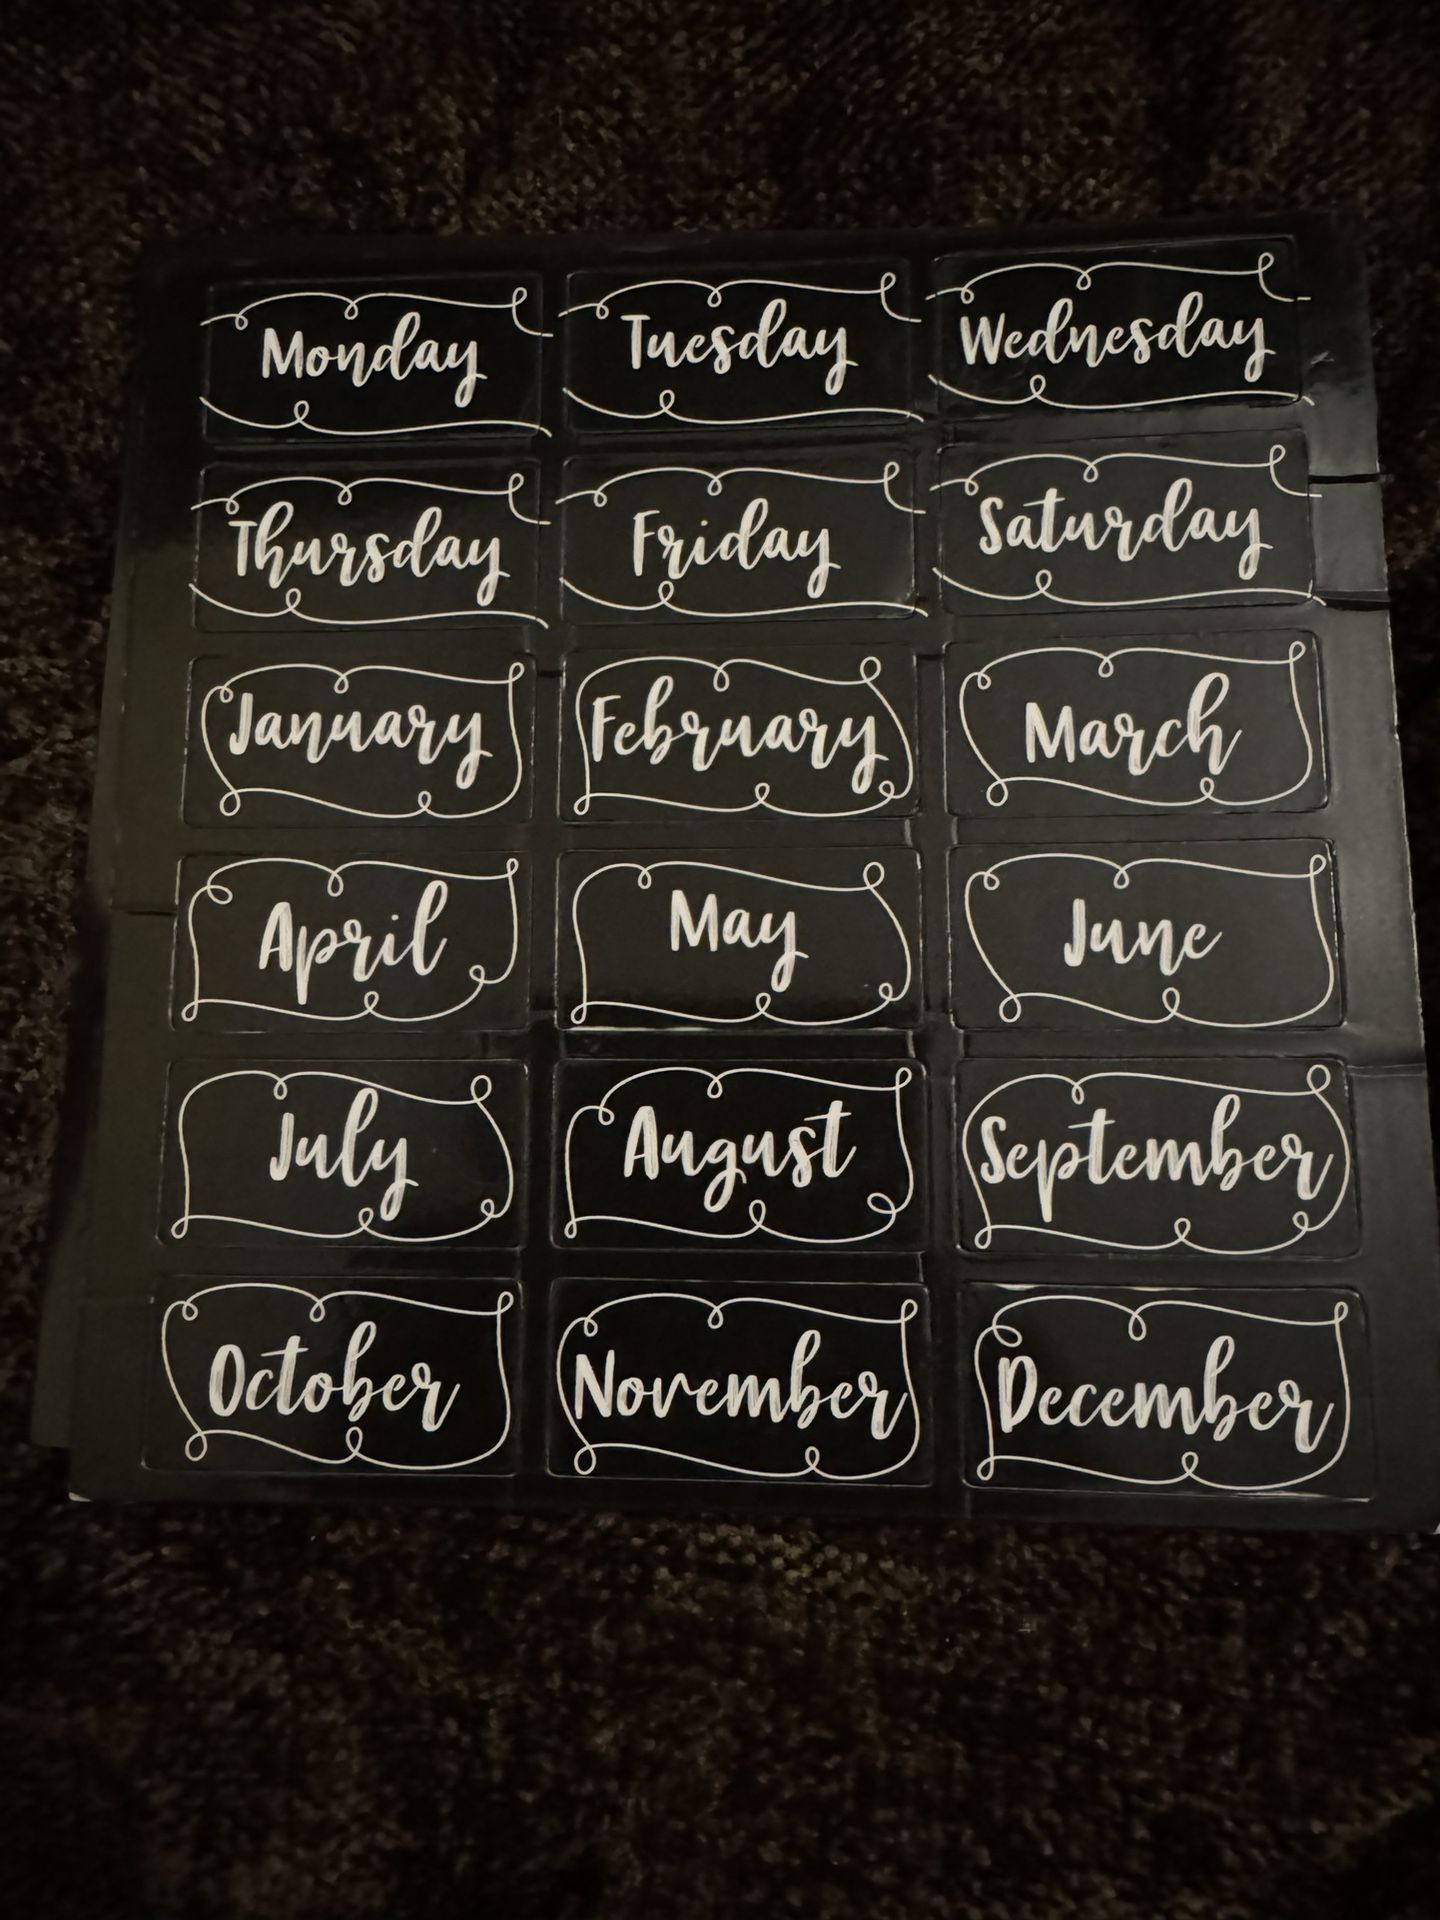 Monday Tuesday Wednesday
Thursday Friday Saturday
January February March
April May June
July August September
October November December